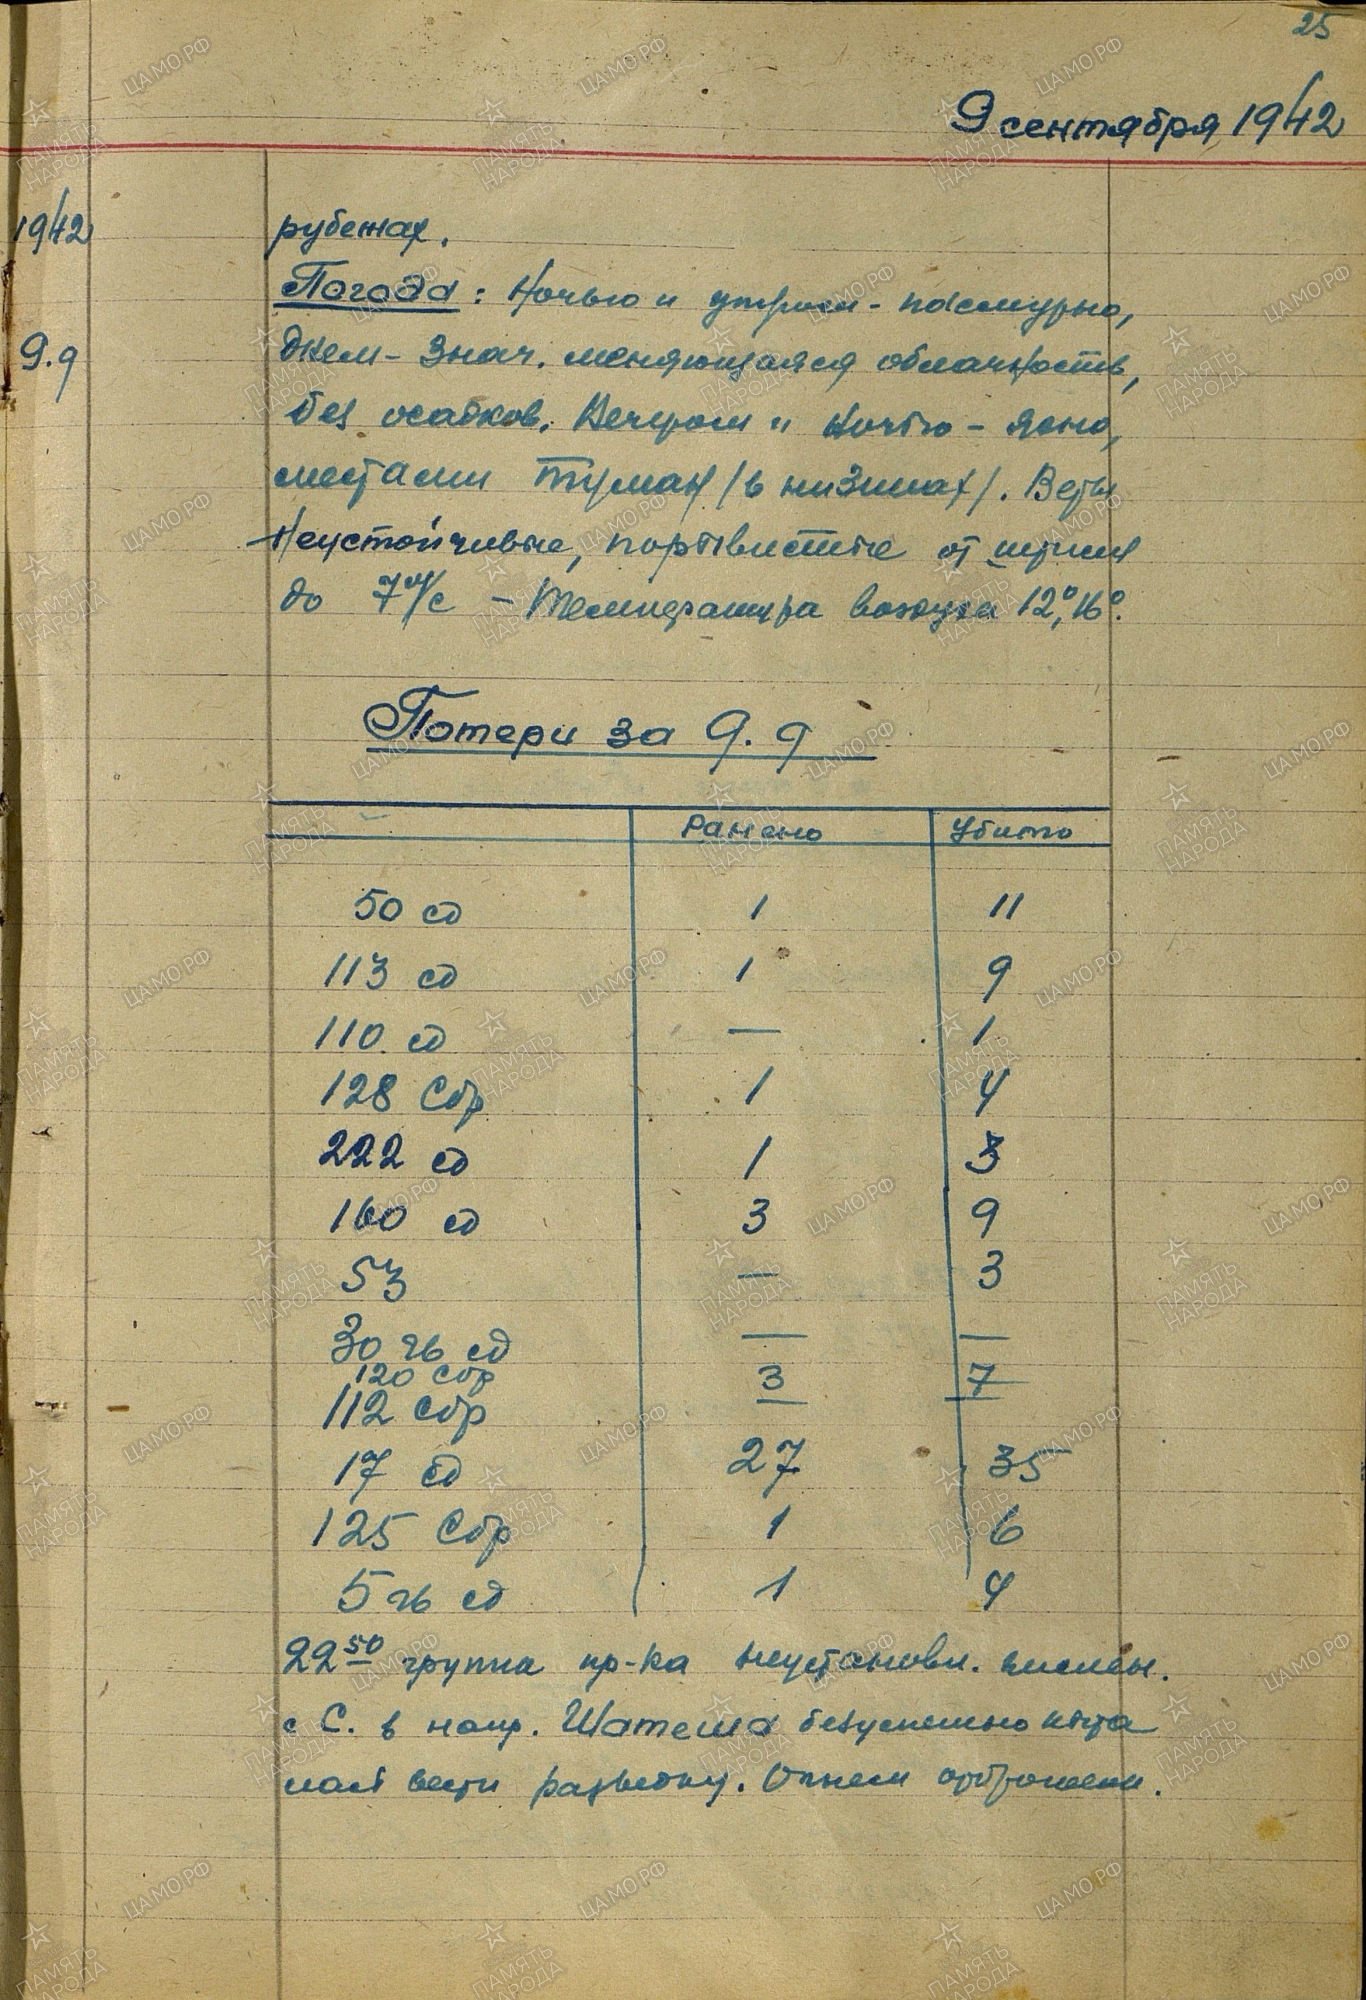 25
9 сентября 1942
1942 рубежах.
Погода: Ночью и утром - пасмурно,
9.9 днем - знач. меняющаяся облачность,
без осадков. Вечером и ночью - ясно,
местами туман /в низинах/. Ветры
неустойчивые, порывистые от штиля
до 7 м/с - Температура воздуха 12°, 16°.
Потери за 9.9
Ранено Убито
50 сд 1 11
113 сд 1 9
110 сд — 1
128 Сбр 1 4
222 сд 1 3
160 сд 3 9
53 — 3
30 гв сд — —
120 сбр 3 7
112 сбр — —
17 сд 27 35
125 Сбр 1 6
5 гв сд 1 4
22 50 группа пр-ка неустановл. числен.
с С. в напр. Шатеша безуспешно пыта
лась вести разведку. Огнем отброшена.
ЦАМО.РФ
ПАМЯТЬ НАРОДА